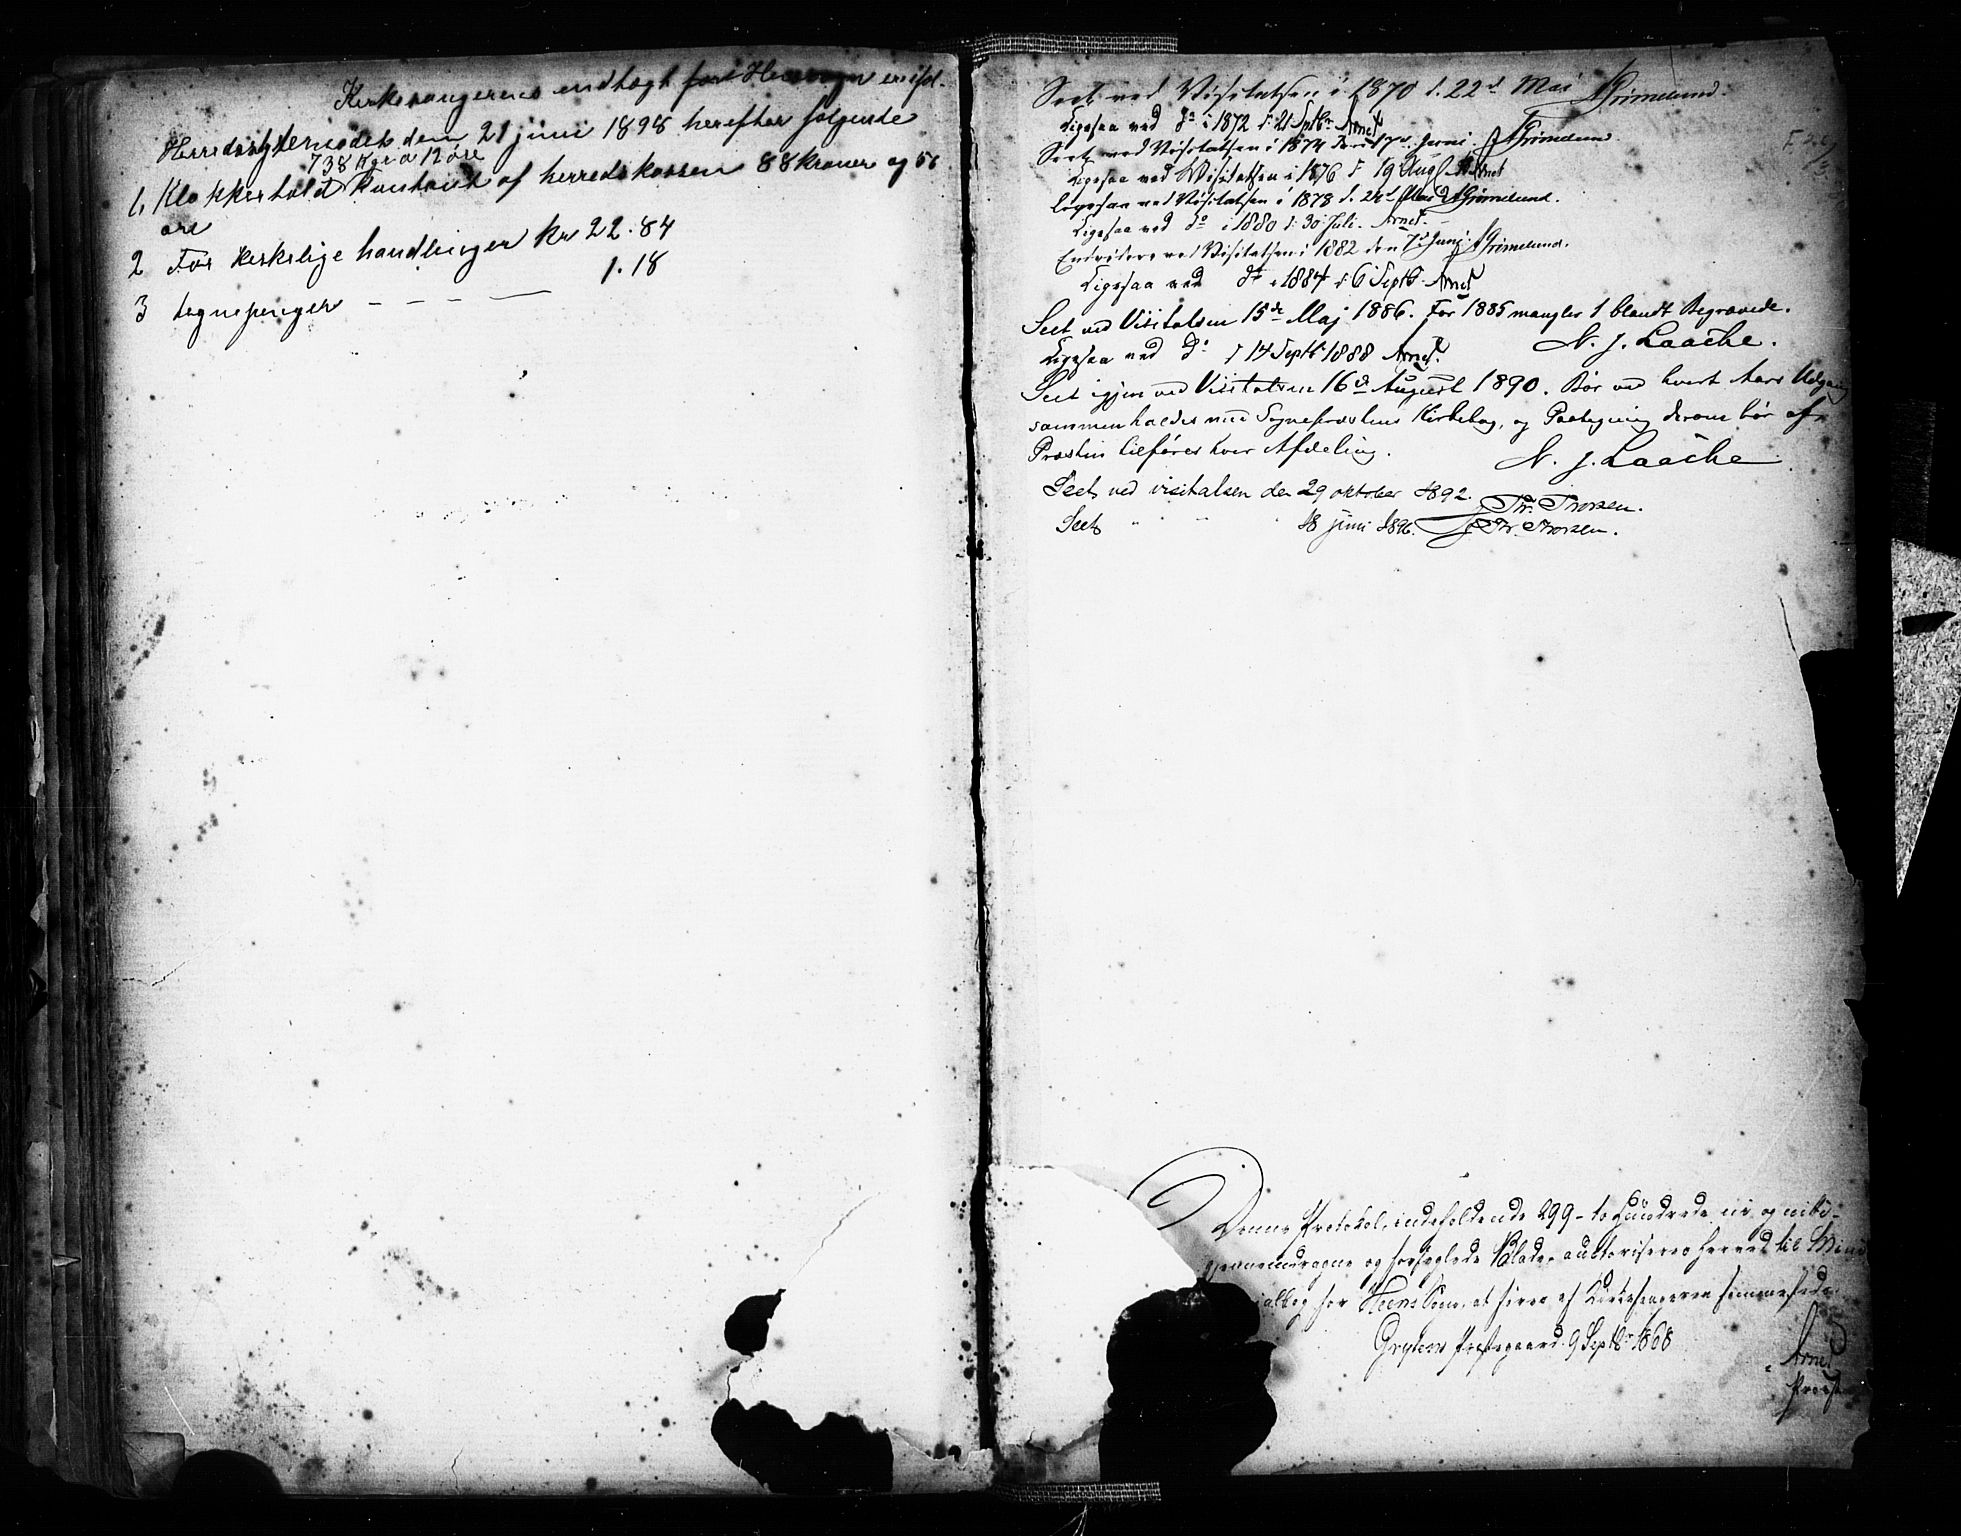 Kirkesangerens indtægt for Hensogn er iføl-
Herredsstyremødet den 21 juni 1898 herefter følgende
738 Kgr a 12 øre
1. Klokkertold kontant af herredskassen 88 kroner og 56
øre
2 For kirkelige handlinger kr 22.84
3 tegnepenger - - - - 1.18
Seet ved Visitatsen i 1870 d. 22d Mai Grimelund.
Ligesaa ved do i 1872 d. 21 Septbr Arnet
Seet ved Visitatsen i 1874 den 17de Juni. Grimelund
Ligesaa ved Visitatsen i 1876 d 19 Aug Arnet
Ligesaa ved Visitatsen i 1878 d. Mai Grimelund.
Ligesaa ved do i 1880 d. 30 Juli. Arnet.
Endvidere ved Visitatsen i 1882 den 7d Juni. Grimelund.
Ligesaa ved do i 1884 d 6 Septb. Arnet
Seet ved Visitatsen 15de Maj 1886. For 1885 mangler 1 blandt Begravede.
N. J. Laache.
Ligesaa ved Do d 14 Septb. 1888 Arnet.
Seet igjen ved Visitatsen 16de August 1890. Bør ved hvert Aars Udgang
sammenholdes med Sognepræstens Kirkebog, og Paategning derom bør af
Præsten tilføres hver Afdeling.
N. J. Laache
Seet ved visitatsen den 29 oktober 1892. Thv. Thorsen.
Seet " " 18 juni 1896. Thv. Thorsen.
Denne Protokol, indeholdende 299 - to Hundrede ni og nitti-
gjennemdragne og forseglede Blade, auctoriseres herved til Mini
ialbog for Heens Sogn, at føres af Kirkesangeren sammesteds.
Grytens Præstegaard 9 Septbr 1868
Arnet
Provst